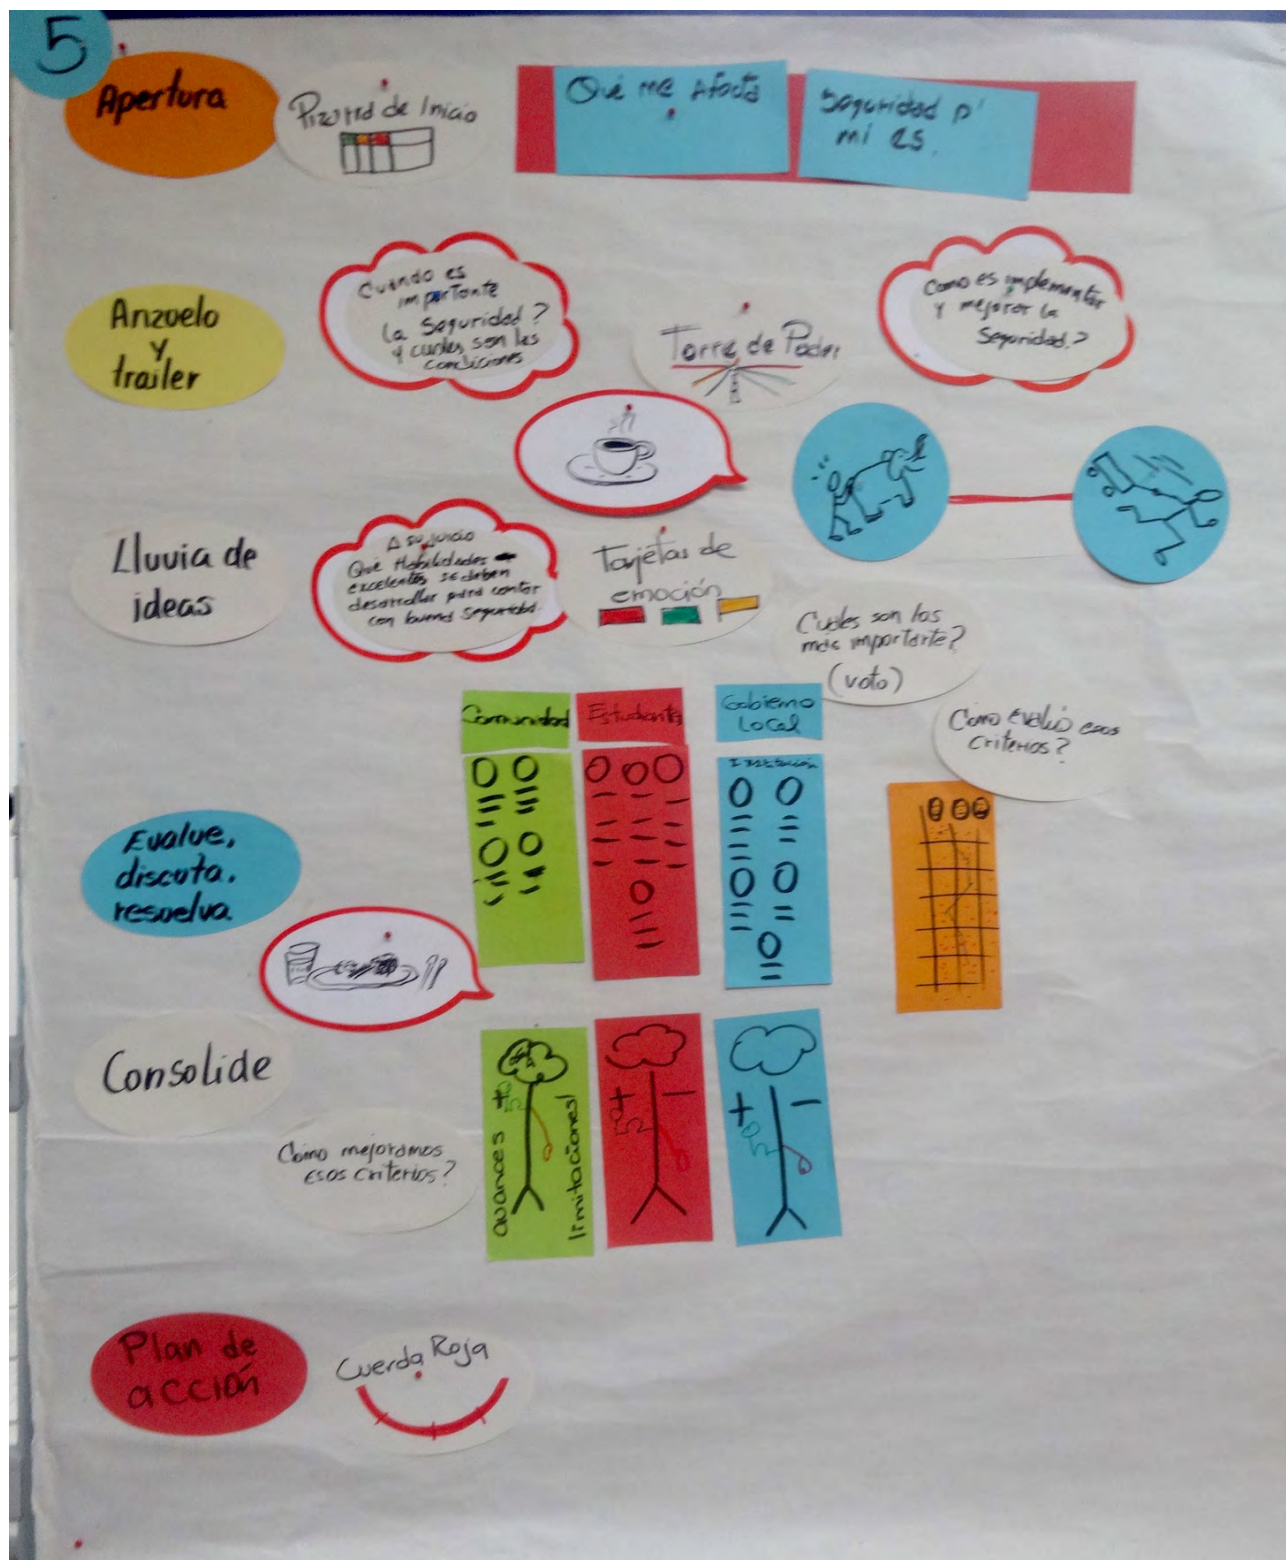 5
Apertura
Pizarra de Inicio
Qué me Afecta
Seguridad p'
mi es.
Anzuelo
y
trailer
Cuándo es
importante
la Seguridad?
y cuales son las
condiciones
Torre de Poder
Como es implementar
y mejorar la
Seguridad?
Lluvia de
ideas
A su juicio
Qué Habilidades
excelentes se deben
desarrollar para contar
con buena Seguridad.
Tarjetas de
emoción
Cuáles son las
más importante?
(voto)
Comunidad
Estudiantes
Gobierno
Local
Institución
Cómo evalúo esos
criterios?
Evalue,
discuta,
resuelva
Consolide
Cómo mejoramos
esos criterios?
avances +
limitaciones
+
-
+
-
Plan de
acción
Cuerda Roja